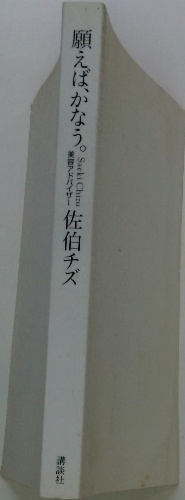 願えば、かなう。
Saeki Chizu
美容アドバイザー
佐伯チズ
講談社